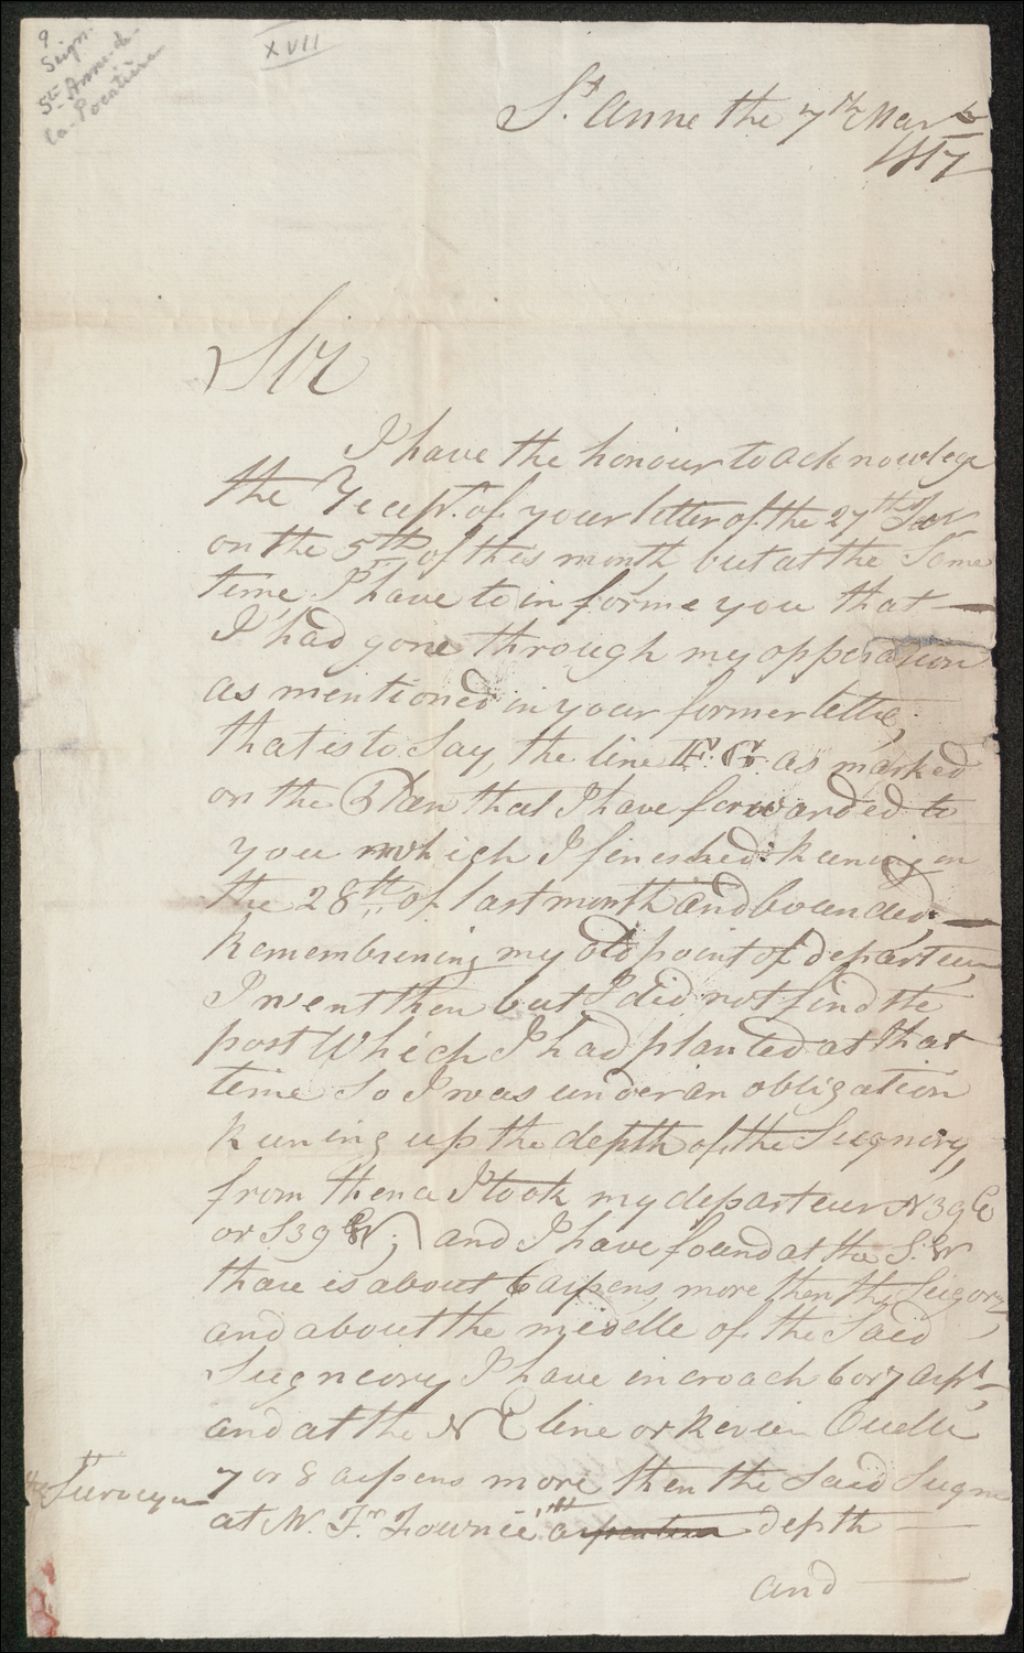 9
Seign.
Ste-Anne-de-
la-Pocatière
XVII
St. Anne the 7th March
1817
Sir
I have the honour to acknowlege
the Recept. of your letter of the 27th
on the 5th of this month but at the Same
time I have to informe you that —
I had gone through my opperation
as mentioned in your former letter,
that is to Say, the line F. G. as marked
on the Plan that I have forwarded to
you which I fineshed: Runing on
the 28th of last month and bounded, —
Remembrening my old point of departeur
I went then but I did not find the
post Which I had planted at that
time So I was under an obligation
Runing up the depth of the Seigniory,
from thence I took my departeur N 39 E
or S 39 W; and I have found at the S. W
thare is about 6 arpens, more then the
and about the midelle of the Said
Seigneiory I have incroach 6 or 7 arpt,
and at the N E line or River Ouelle
7 or 8 arpens more then the Said
Surveyur
at M. Fr. depth —
and —